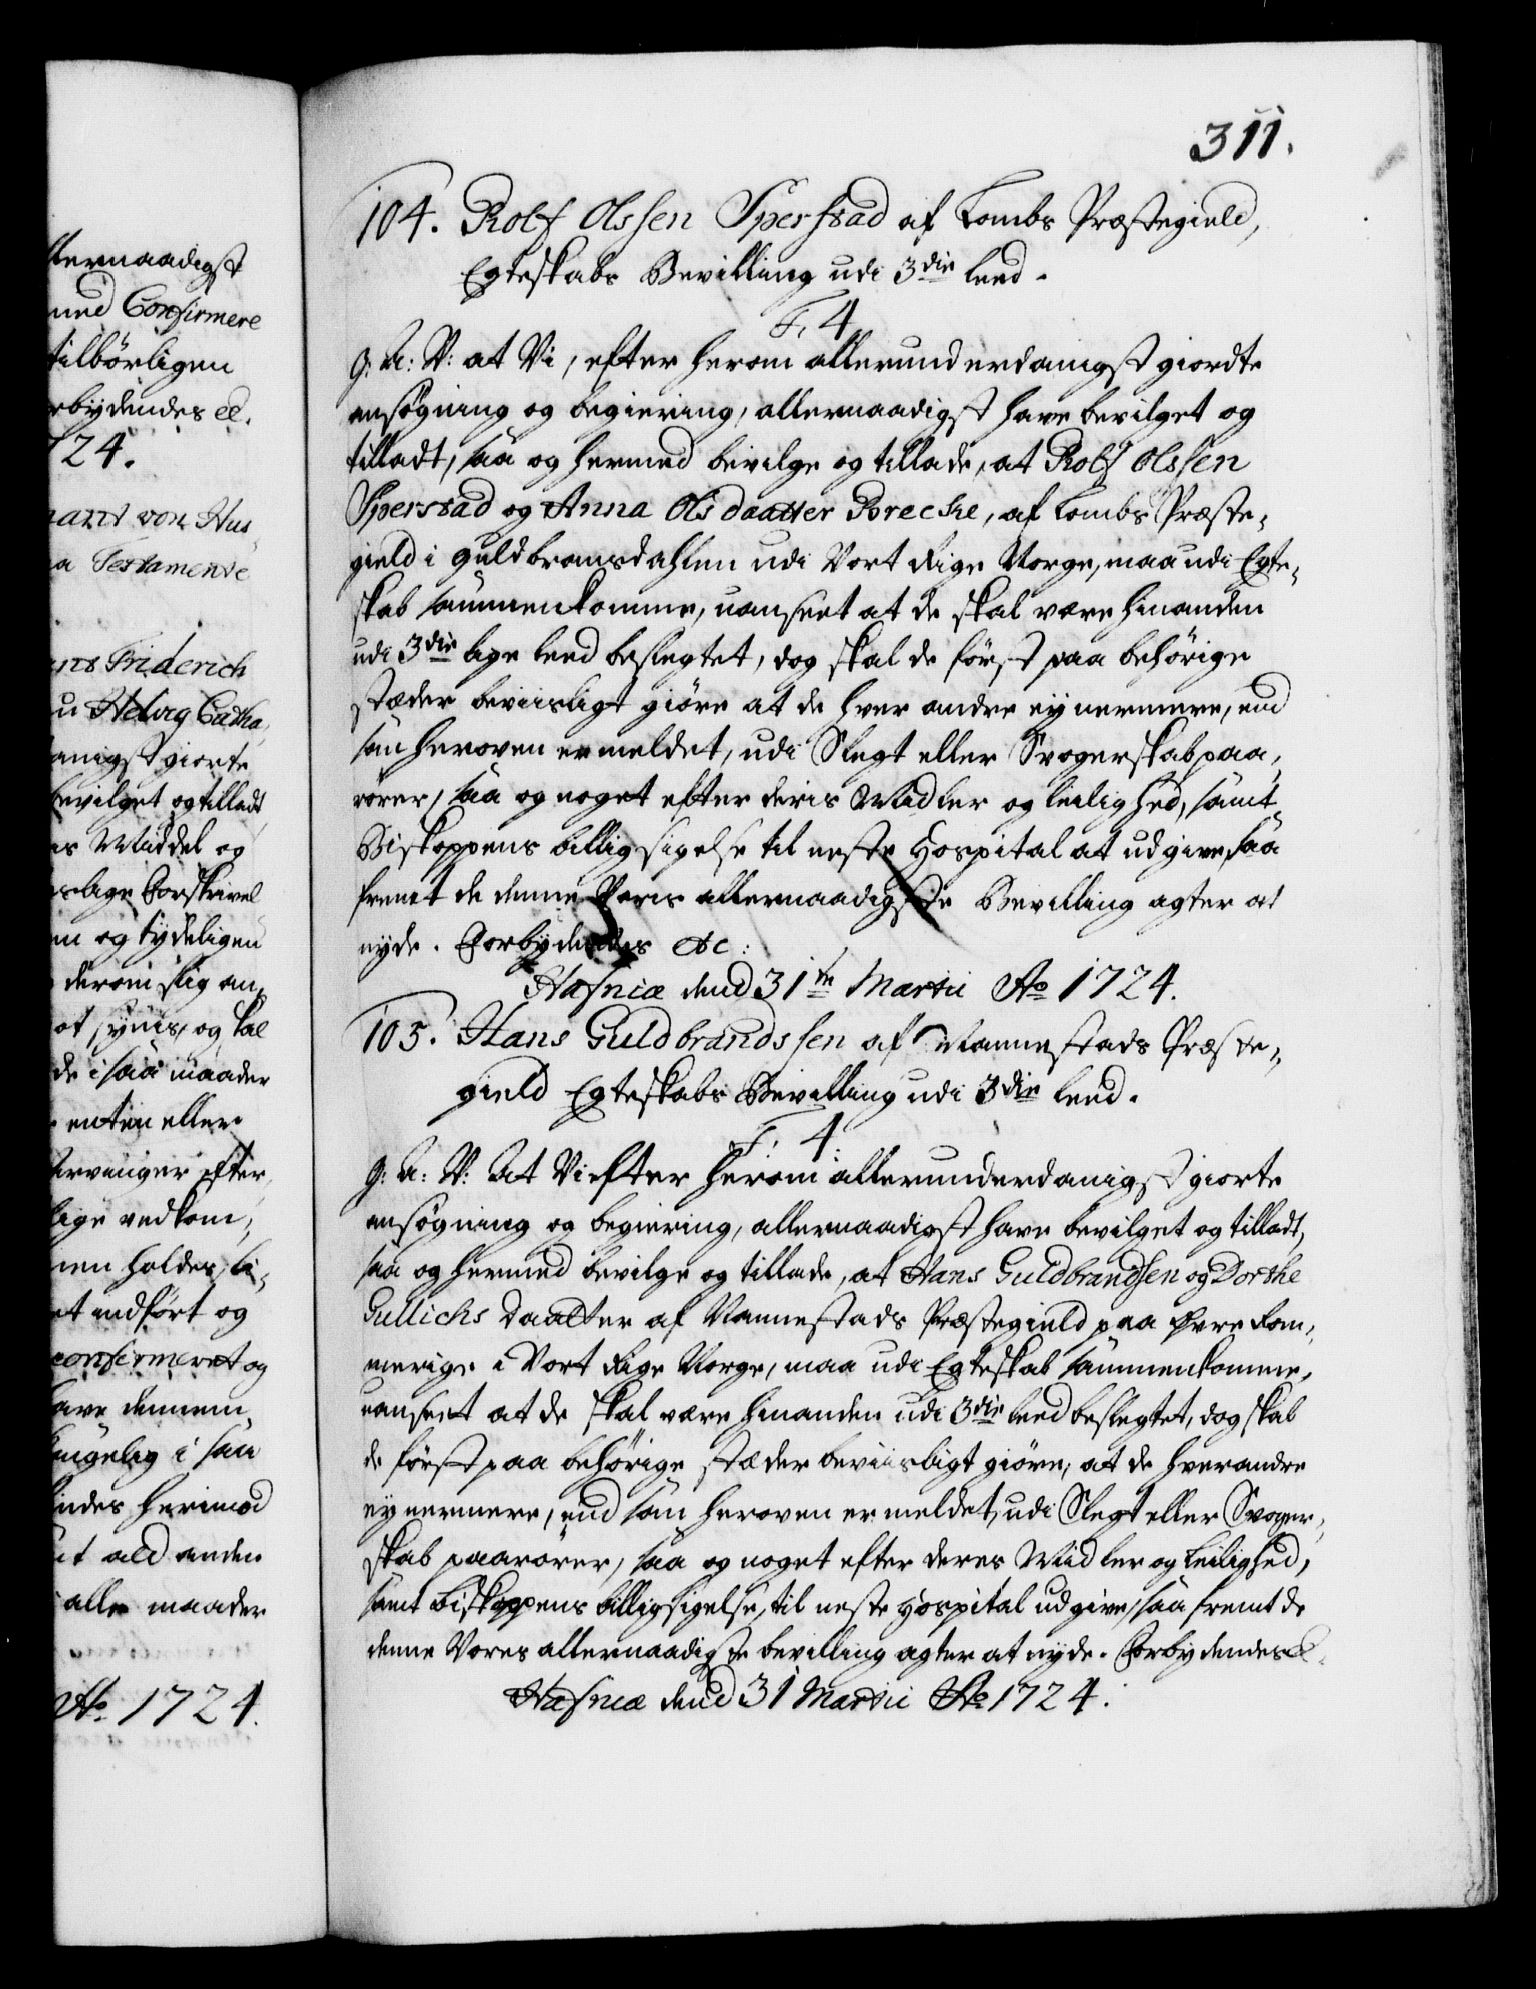 311.
104. Rolf Olssen Sperstad af Lombs Præstegield,
Egteskabs Bevilling udi 3die Leed.
F. 4
G: A: V: at Vi, efter herom allerunderdanigst giordte
ansøgning og begiering, allernaadigst have bevilget og
tilladt, saa og hermed bevilge og tillade, at Rolf Olssen
Sperstad og Anna Ols daatter Brecke, af Lombs Præste-
gield i Guldbransdahlen udi Vort Rige Norge, maa udi Egte-
skab sammenkomme, uanseet at de skal være hinanden
udi 3die lige leed beslegtet, dog skal de først paa behörige
stæder beviisligt giöre at de hver andre ey nermere, end
som heroven ermeldet, udi Slegt eller Svogerskab paa-
rörer, saa og noget efter deris Midler og leilighed, samt
Biskoppens billigsigelse til neste Hospital at udgive, saa
fremt de denne Voris allernaadigste Bevilling agter at
nyde. Forbydendes etc:
Hafniæ dend 31te Martii Ao 1724.
105. Hans Guldbrandssen af Nannestads Præste-
gield Egteskabs Bevilling udi 3die leed.
F. 4.
G: A: V: At Vi efter herom allerunderdanigst giorte
ansøgning og begiering, allernaadigst have bevilget og tilladt,
saa og hermed bevilge og tillade, at Hans Guldbrandsen og Dorthe
Gullichs daatter af Nannestads Præstegield paa Øvre Rom-
merige i Vort Rige Norge, maa udi Egteskab sammenkomme,
uanseet at de skal være hinanden udi 3die leed beslegtet, dog skal
de först paa behörige stæder beviisligt giöre, at de hverandre
ey nermere, end som heroven ermeldet, udi Slegt eller Svoger-
skab paarörer, saa og noget efter deres Midler og leilighed,
samt biskoppens billigsigelse, til neste Hospital udgive, saa fremt de
denne Vores allernaadigste bevilling agter at nyde. Forbydendes &.
Hafniæ dend 31 Martii Ao 1724.
llernaadigst
Confirmere
tilbørligen
rbydendes &.
724.
von Hus-
a Testamente
Friderich
u Hedvig Catha-
anigst giorte
bevilget og tilladt
Middel og
Forskrivel
en og tydeligen
derom slig an-
ot synis, og skal
de i saa maader
enten eller
Arvinger efter
lige vedkom-
nen holdes, li-
et indført og
confirmeret og
have dennem
i saa
indes herimod
ald anden
alle maader
Ao. 1724.